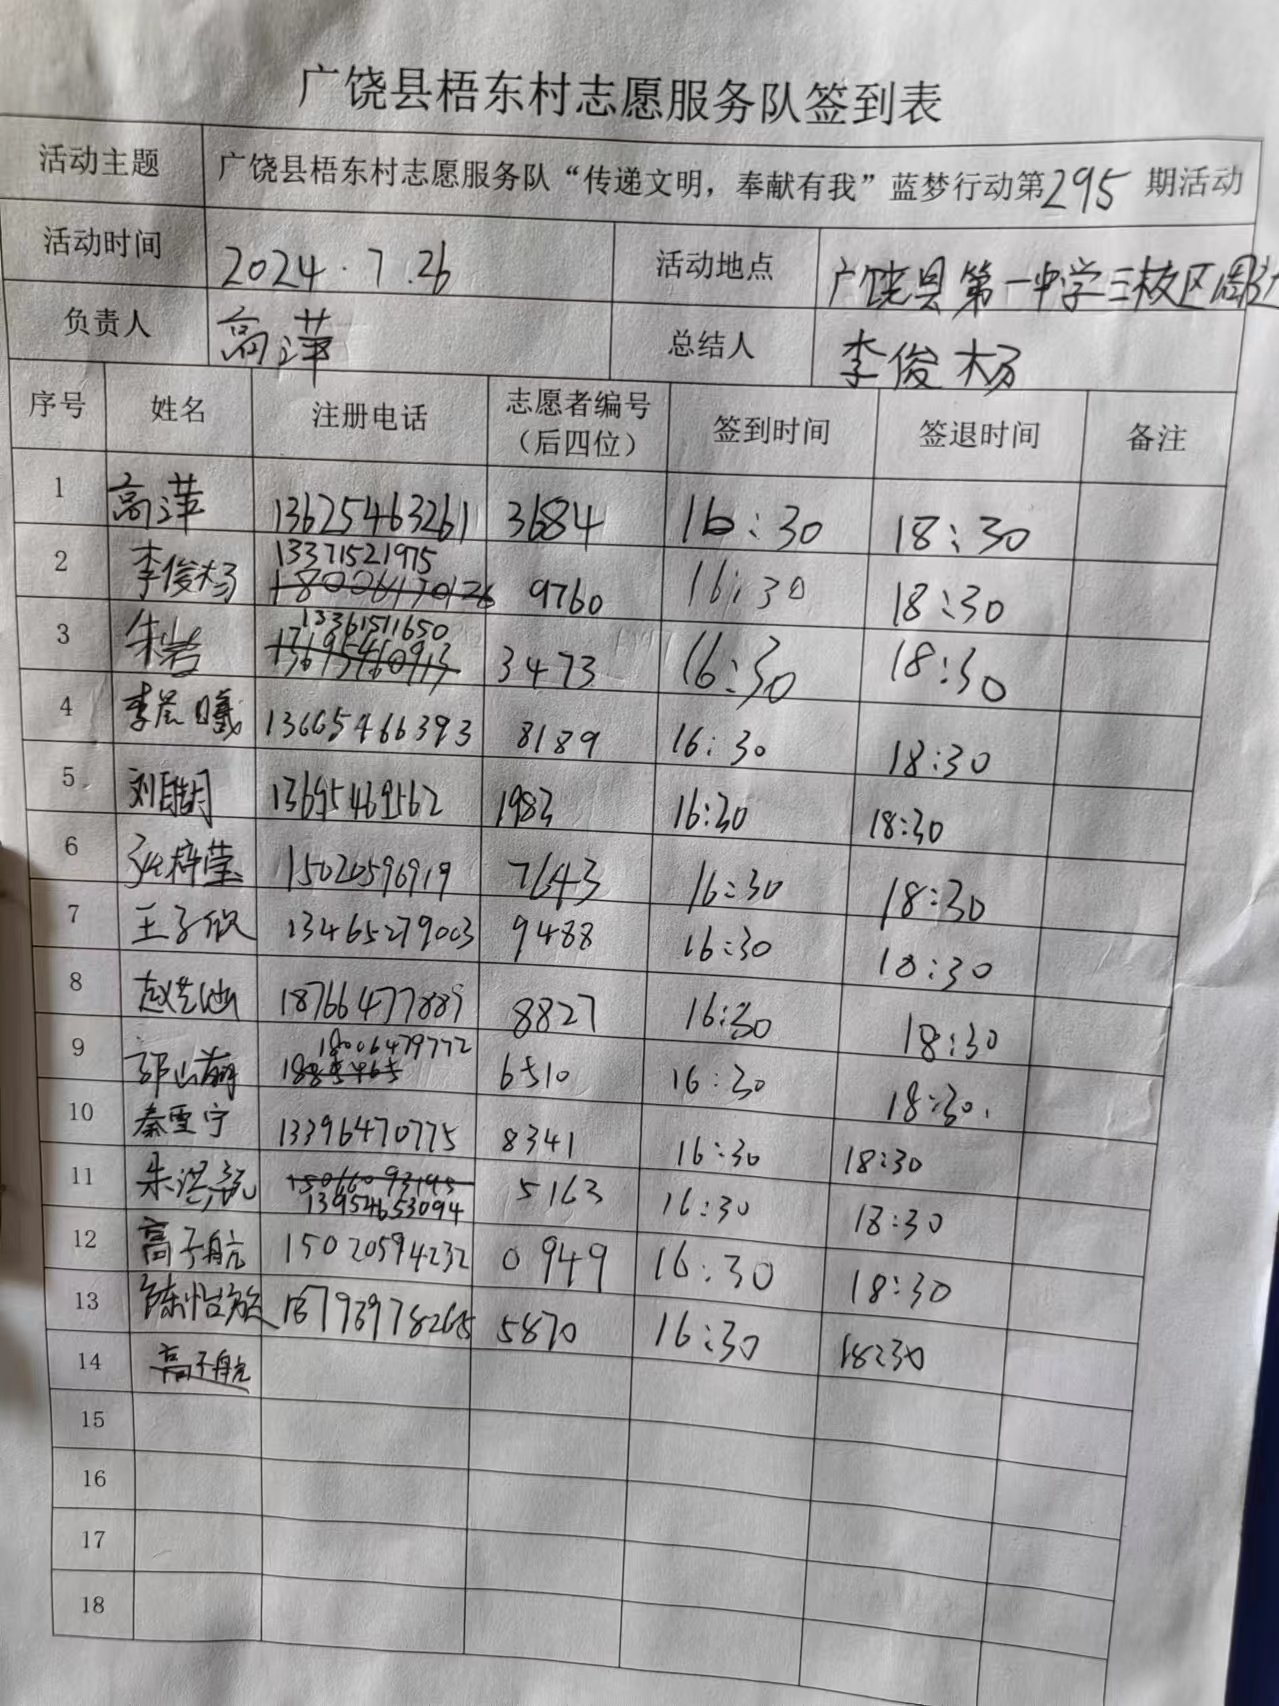 广饶县梧东村志愿服务队签到表
活动主题 广饶县梧东村志愿服务队“传递文明，奉献有我”蓝梦行动第295期活动
活动时间 2024.7.26 活动地点 广饶县第一中学三校区周边
负责人 高萍 总结人 李俊杨
序号 姓名 注册电话 志愿者编号（后四位） 签到时间 签退时间 备注
1 高萍 13625463261 3684 16:30 18:30
2 李俊杨 13371521975 9760 16:30 18:30
3 朱岩 13361511650 3473 16:30 18:30
4 李晨曦 13665466393 8189 16:30 18:30
5 刘 1983 16:30 18:30
6 张梓莹 15020596919 7643 16:30 18:30
7 王子欣 13465279003 9488 16:30 18:30
8 赵艺涵 18766477889 8827 16:30 18:30
9 18006479772 6510 16:30 18:30.
10 秦雪宁 13396470775 8341 16:30 18:30
11 朱 13954653094 5163 16:30 18:30
12 高子航 15020594232 0949 16:30 18:30
13 陈怡 5870 16:30 18:30
14 高子航
15
16
17
18